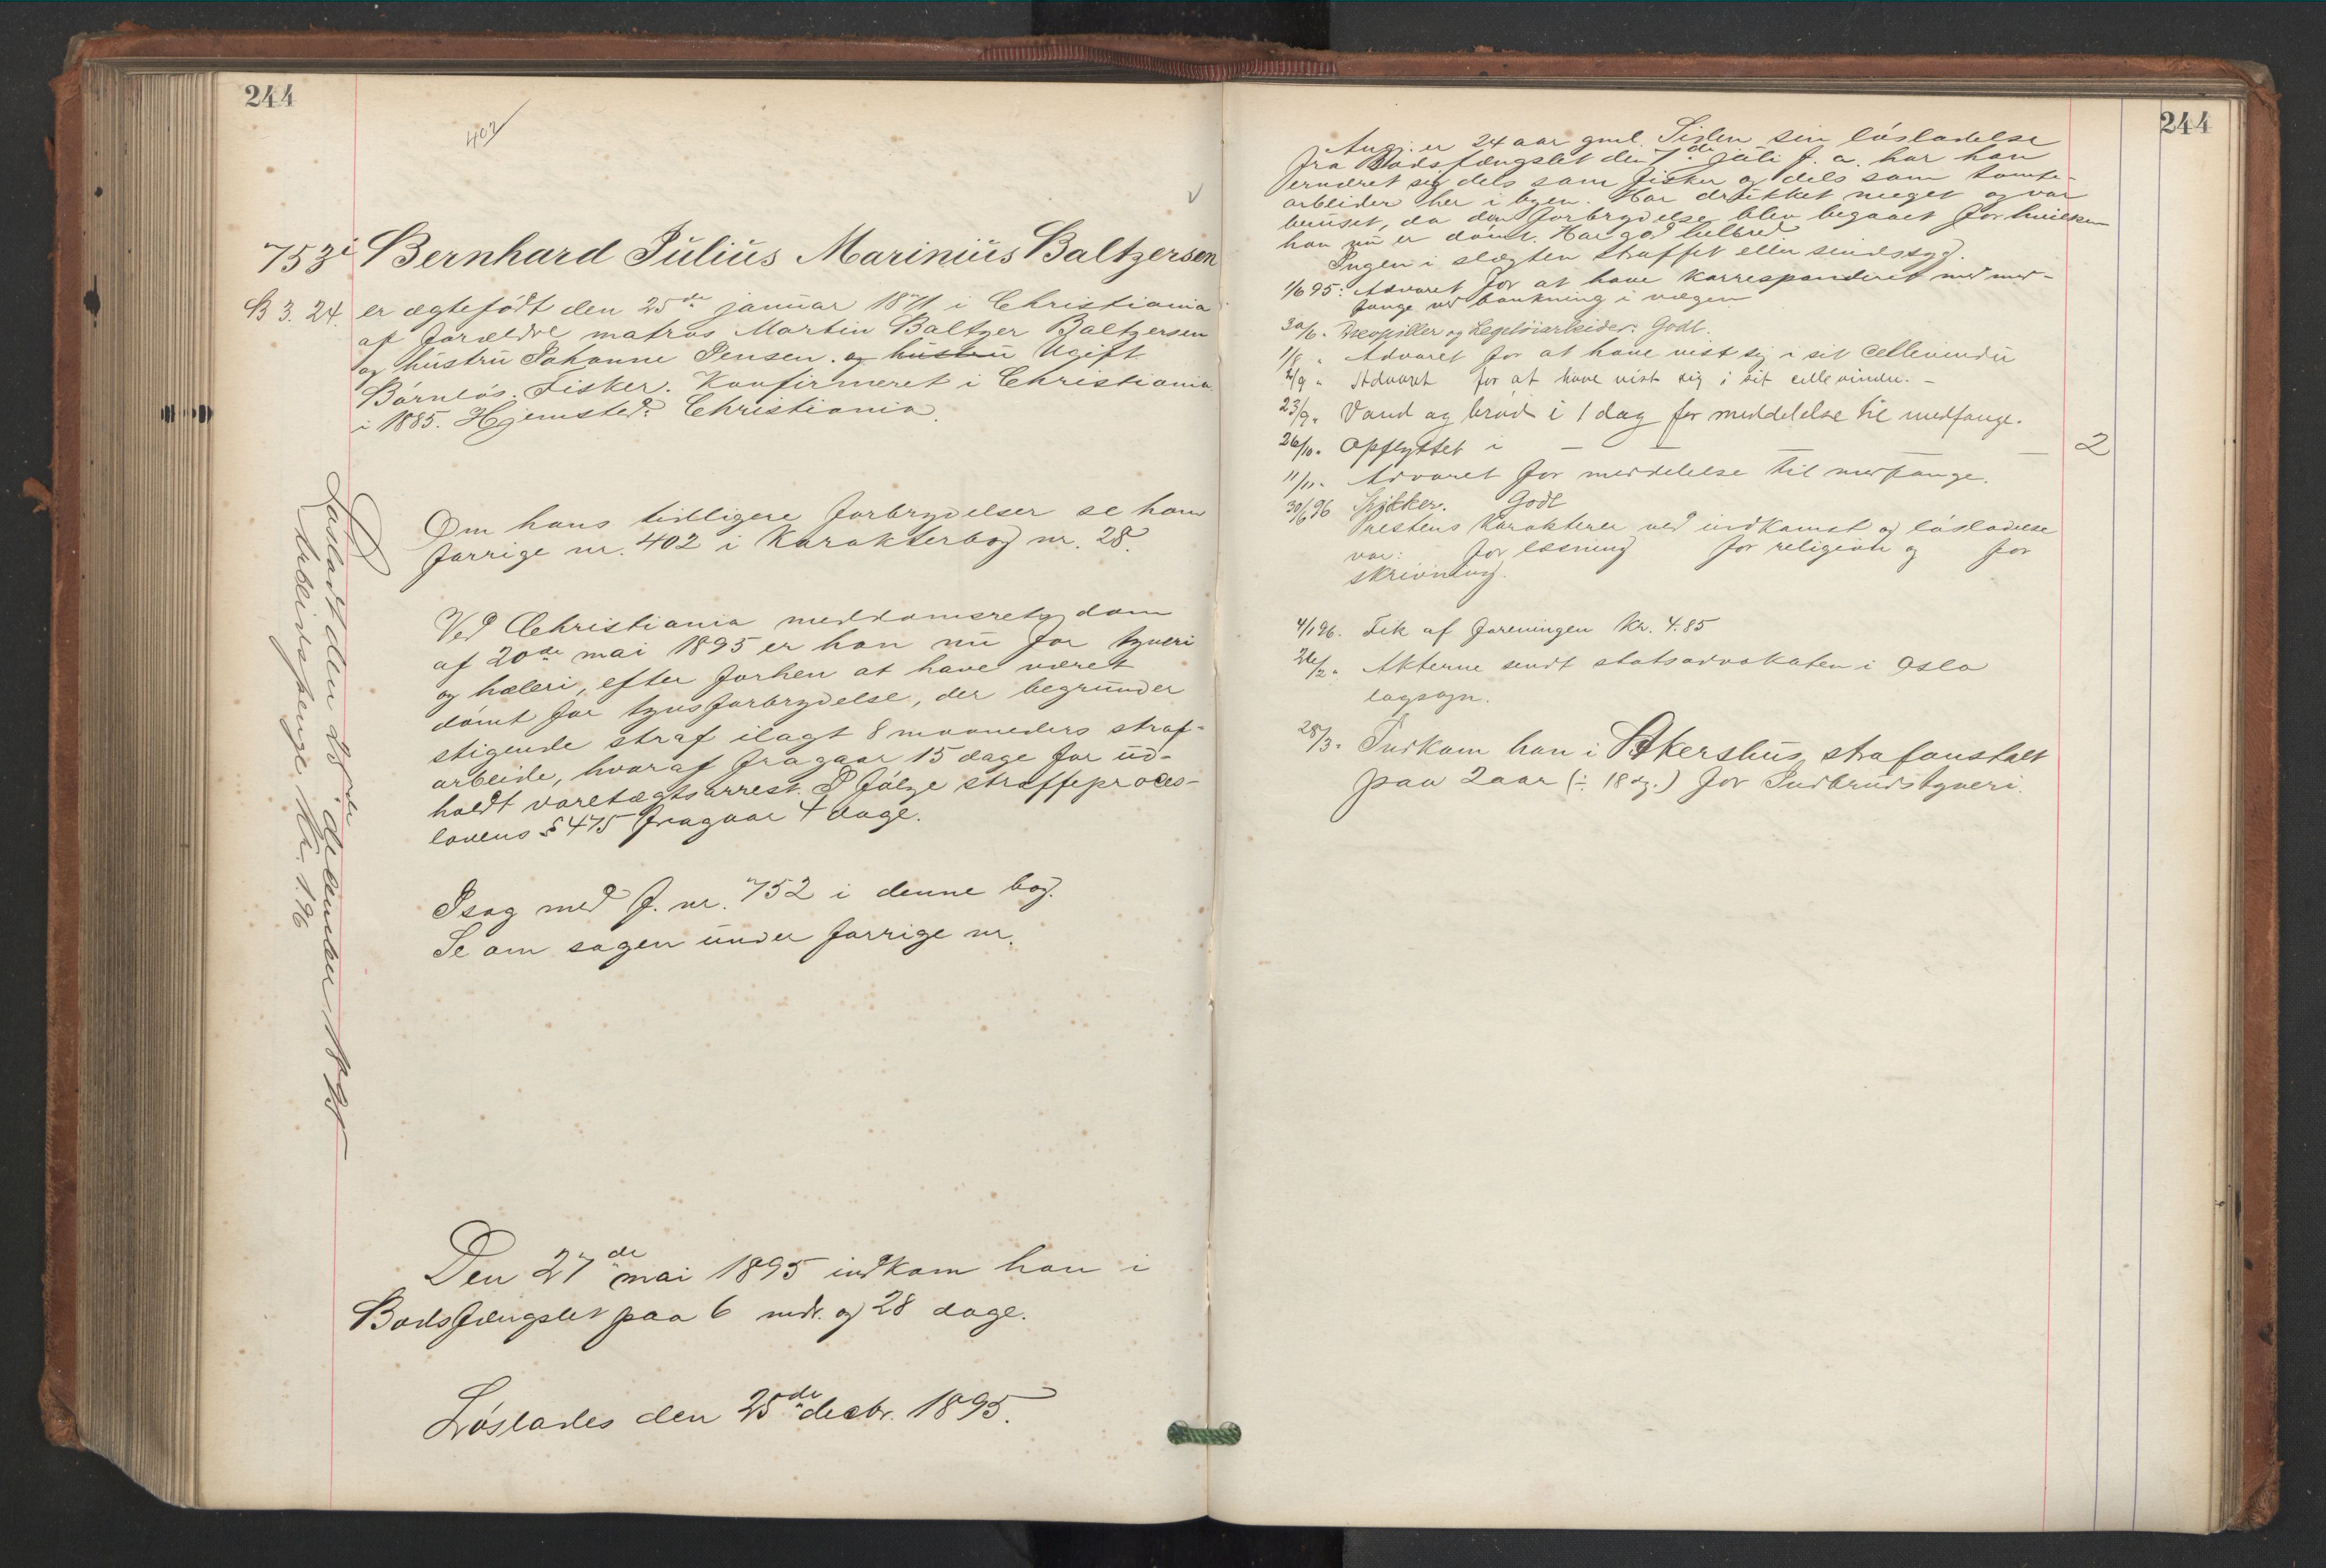 244
402
753i Bernhard Julius Marinius Baltzersen
B 3. 24. er ægtefödt den 25de januar 1871 i Christiania
af forældre matros Martin Baltzer Baltzersen
og hustru Johanne Jensen. og hustru Ugift
Barnlös. Fisker. Konfirmeret i Christiania
i 1885. Hjemsted: Christiania.
Om hans tidligere forbrydelser se hans
forrige nr. 402 i Karakterbog nr. 28.
Ved Christiania meddomsrets dom
af 20de mai 1895 er han nu for tyveri
og hæleri, efter forhen at have været
dömt for tyvsforbrydelse, der begrunder
stigende straf ilagt 8 maaneders straf-
arbeide, hvoraf fragaar 15 dage for ud-
holdt varetægtsarrest. I fölge straffeproces-
lovens § 475 fragaar 4 dage.
I sag med f. nr. 752 i denne bog.
Se om sagen under forrige nr.
Den 27de mai 1895 indkom han i
Bodsfængslet paa 6 mdr. og 28 dage.
Löslades den 25de decbr. 1895.
Lösladt den 25de december 1895
Arbeidspenge Kr. 1.96
244
Angj. er 24 aar gml. Siden sin lösladelse
fra Bodsfængslet den 7de juli f. a. har han
ernæret sig dels som fisker og dels som tomte-
arbeider her i byen. Har drukket meget og var
beruset, da den forbrydelse blev begaaet for hvilken
han nu er dömt. Har god helbred
Ingen i slægten straffet eller sindssyg.
1/6 95. Advaret for at have korresponderet med med-
fange ved bankning i vægen
30/6. og Legetöiarbeider. Godt.
1/8 " Advaret for at have vist sig i sit cellevindu
2/9 " Advaret for at have vist sig i sit cellevindu. -
23/9 " Vand og bröd i 1 dag for meddelelse til medfange.
26/10 " Opflyttet i — — — — 2
11/11 " Advaret for meddelelse til medfange.
30/6 96 Godt
Prestens karakterer ved indkomst og lösladelse
var: for læsning for religion og for
skrivning.
4/1 96. Fik af foreningen Kr. 4.85
26/2 " Akterne sendt statsadvokaten i Oslo
lagsogn.
28/3 " Indkom han i Akershus strafanstalt
paa 2 aar (÷ 18 dg.) for Indbrudstyveri.